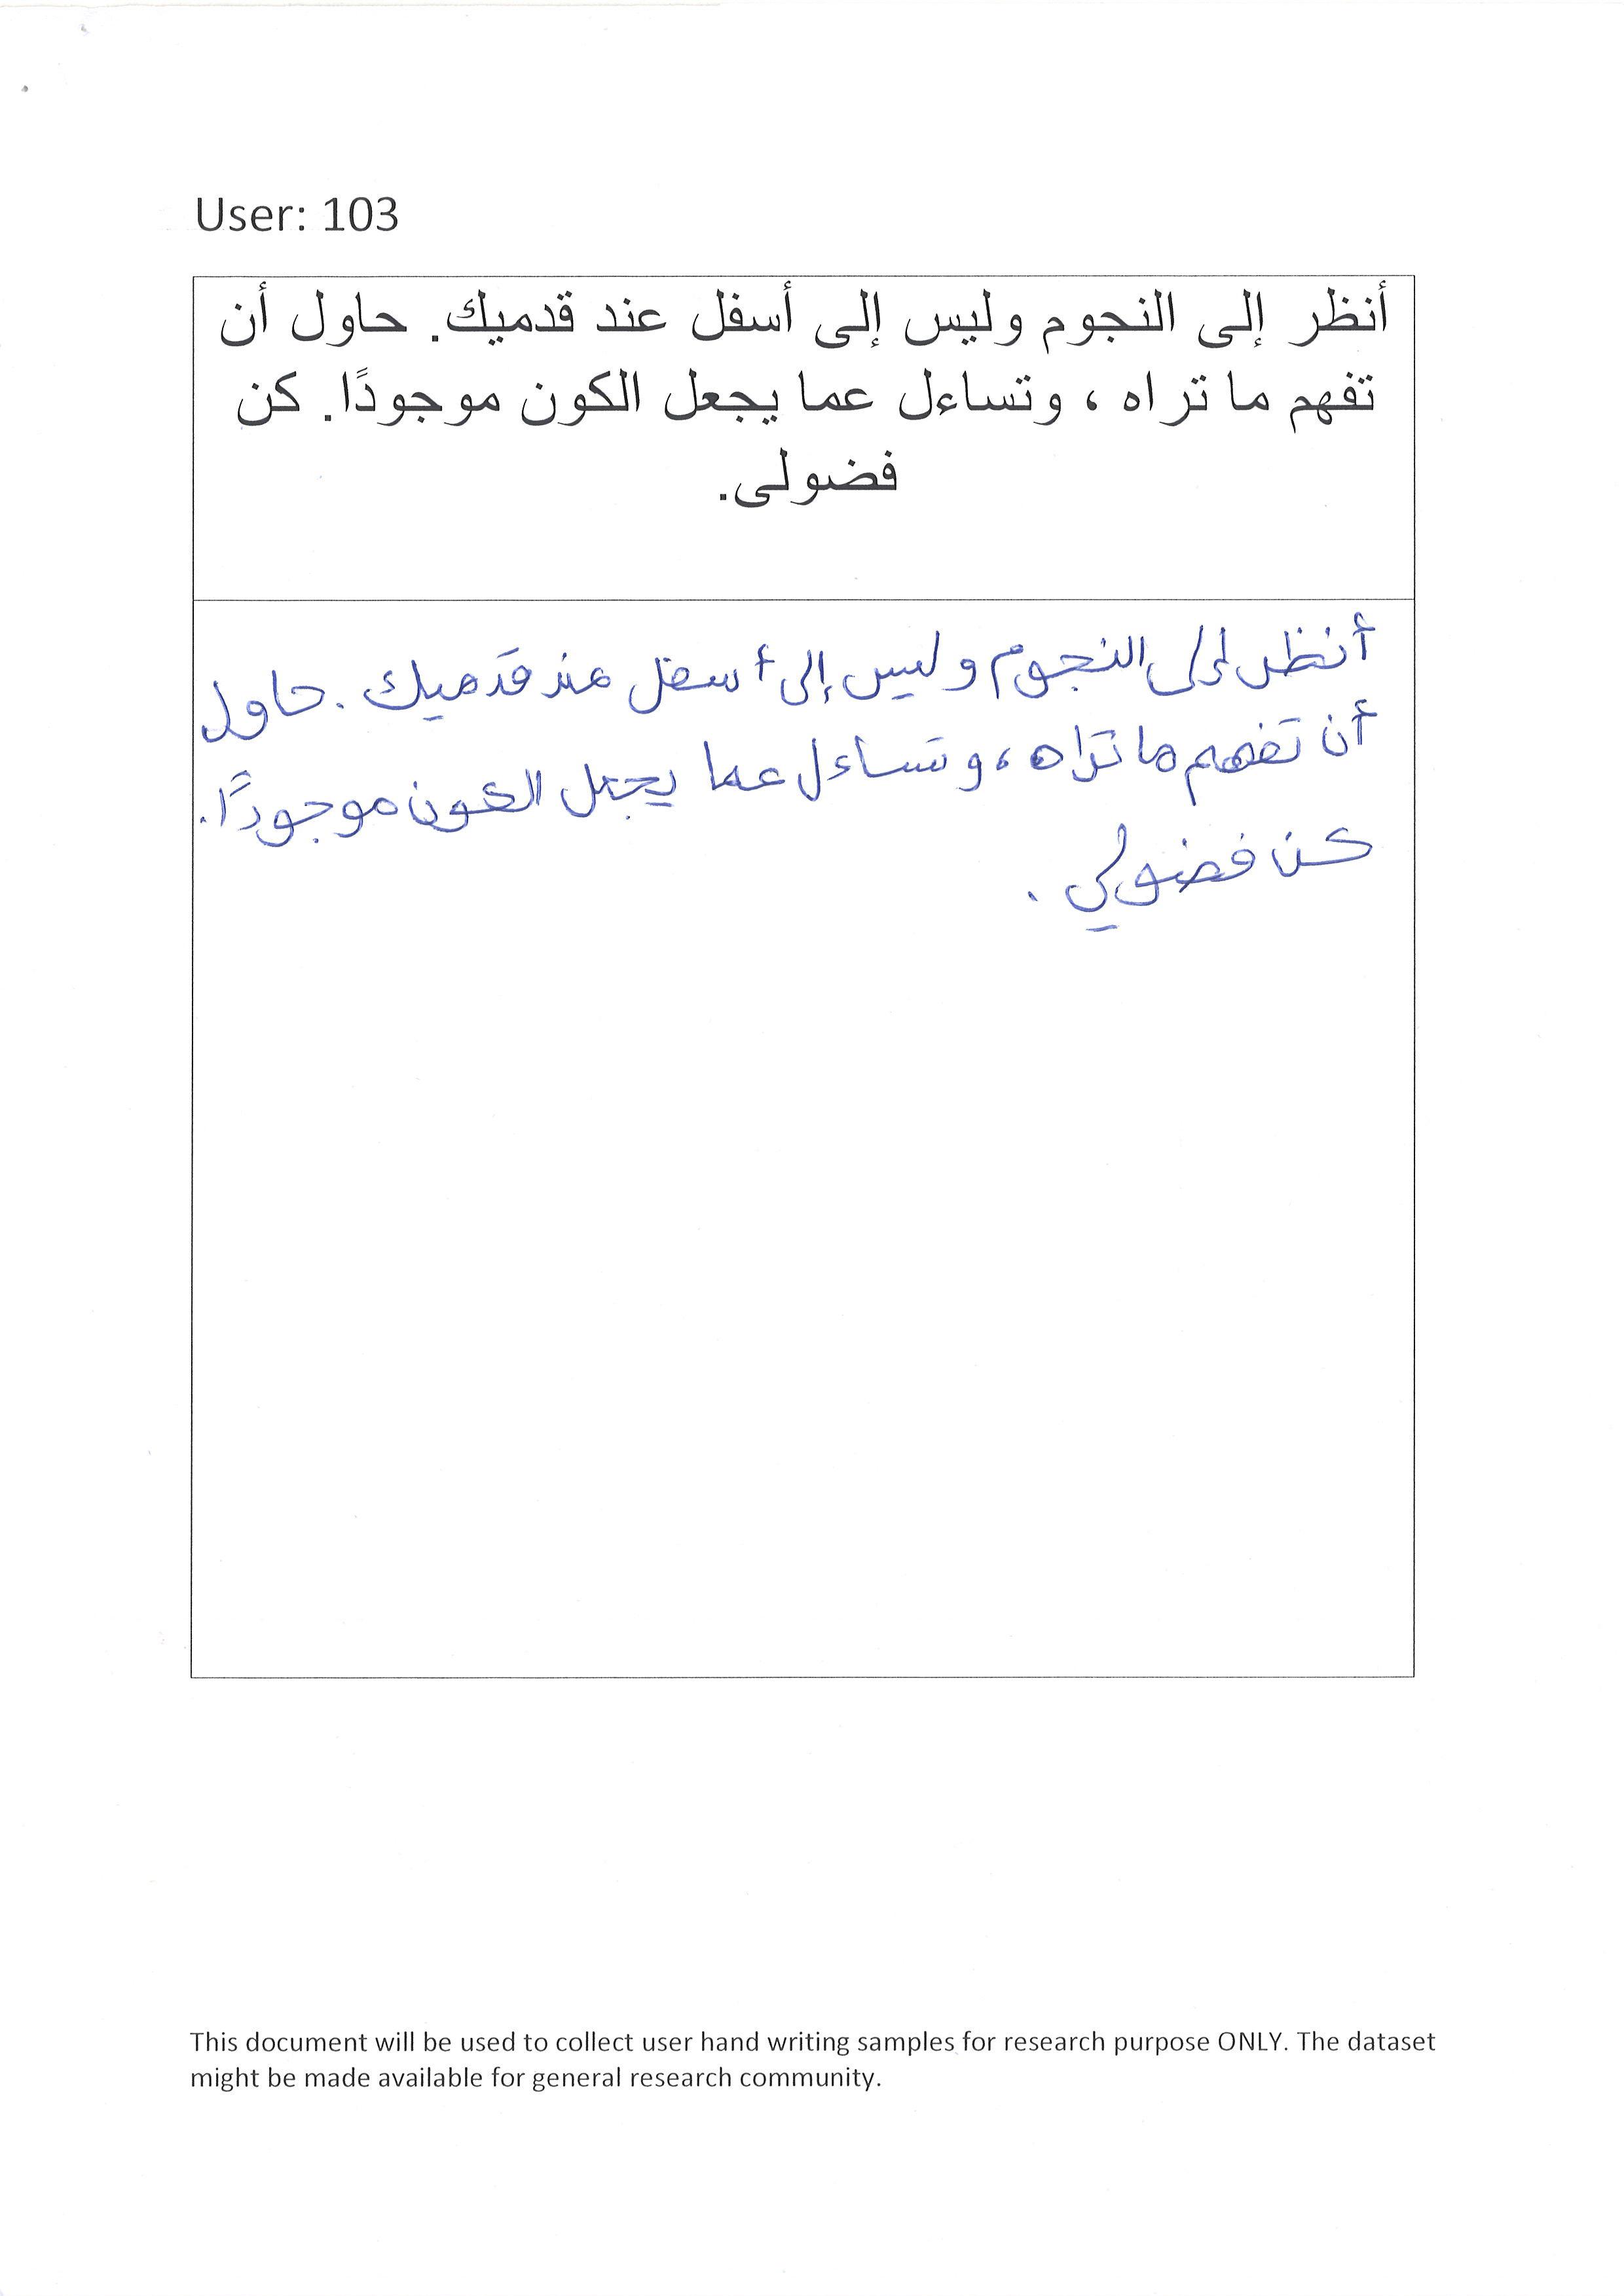 User: 103
أنظر إلى النجوم وليس إلى أسفل عند قدميك. حاول أن
تفهم ما تراه ، وتساءل عما يجعل الكون موجودًا. كن
فضولى.
أنظر إلى النجوم وليس إلى أسفل عند قدميك . حاول
أن تفهم ما تراه ، وتساءل عما يجعل الكون موجودًا.
كن فضولي .
This document will be used to collect user hand writing samples for research purpose ONLY. The dataset
might be made available for general research community.